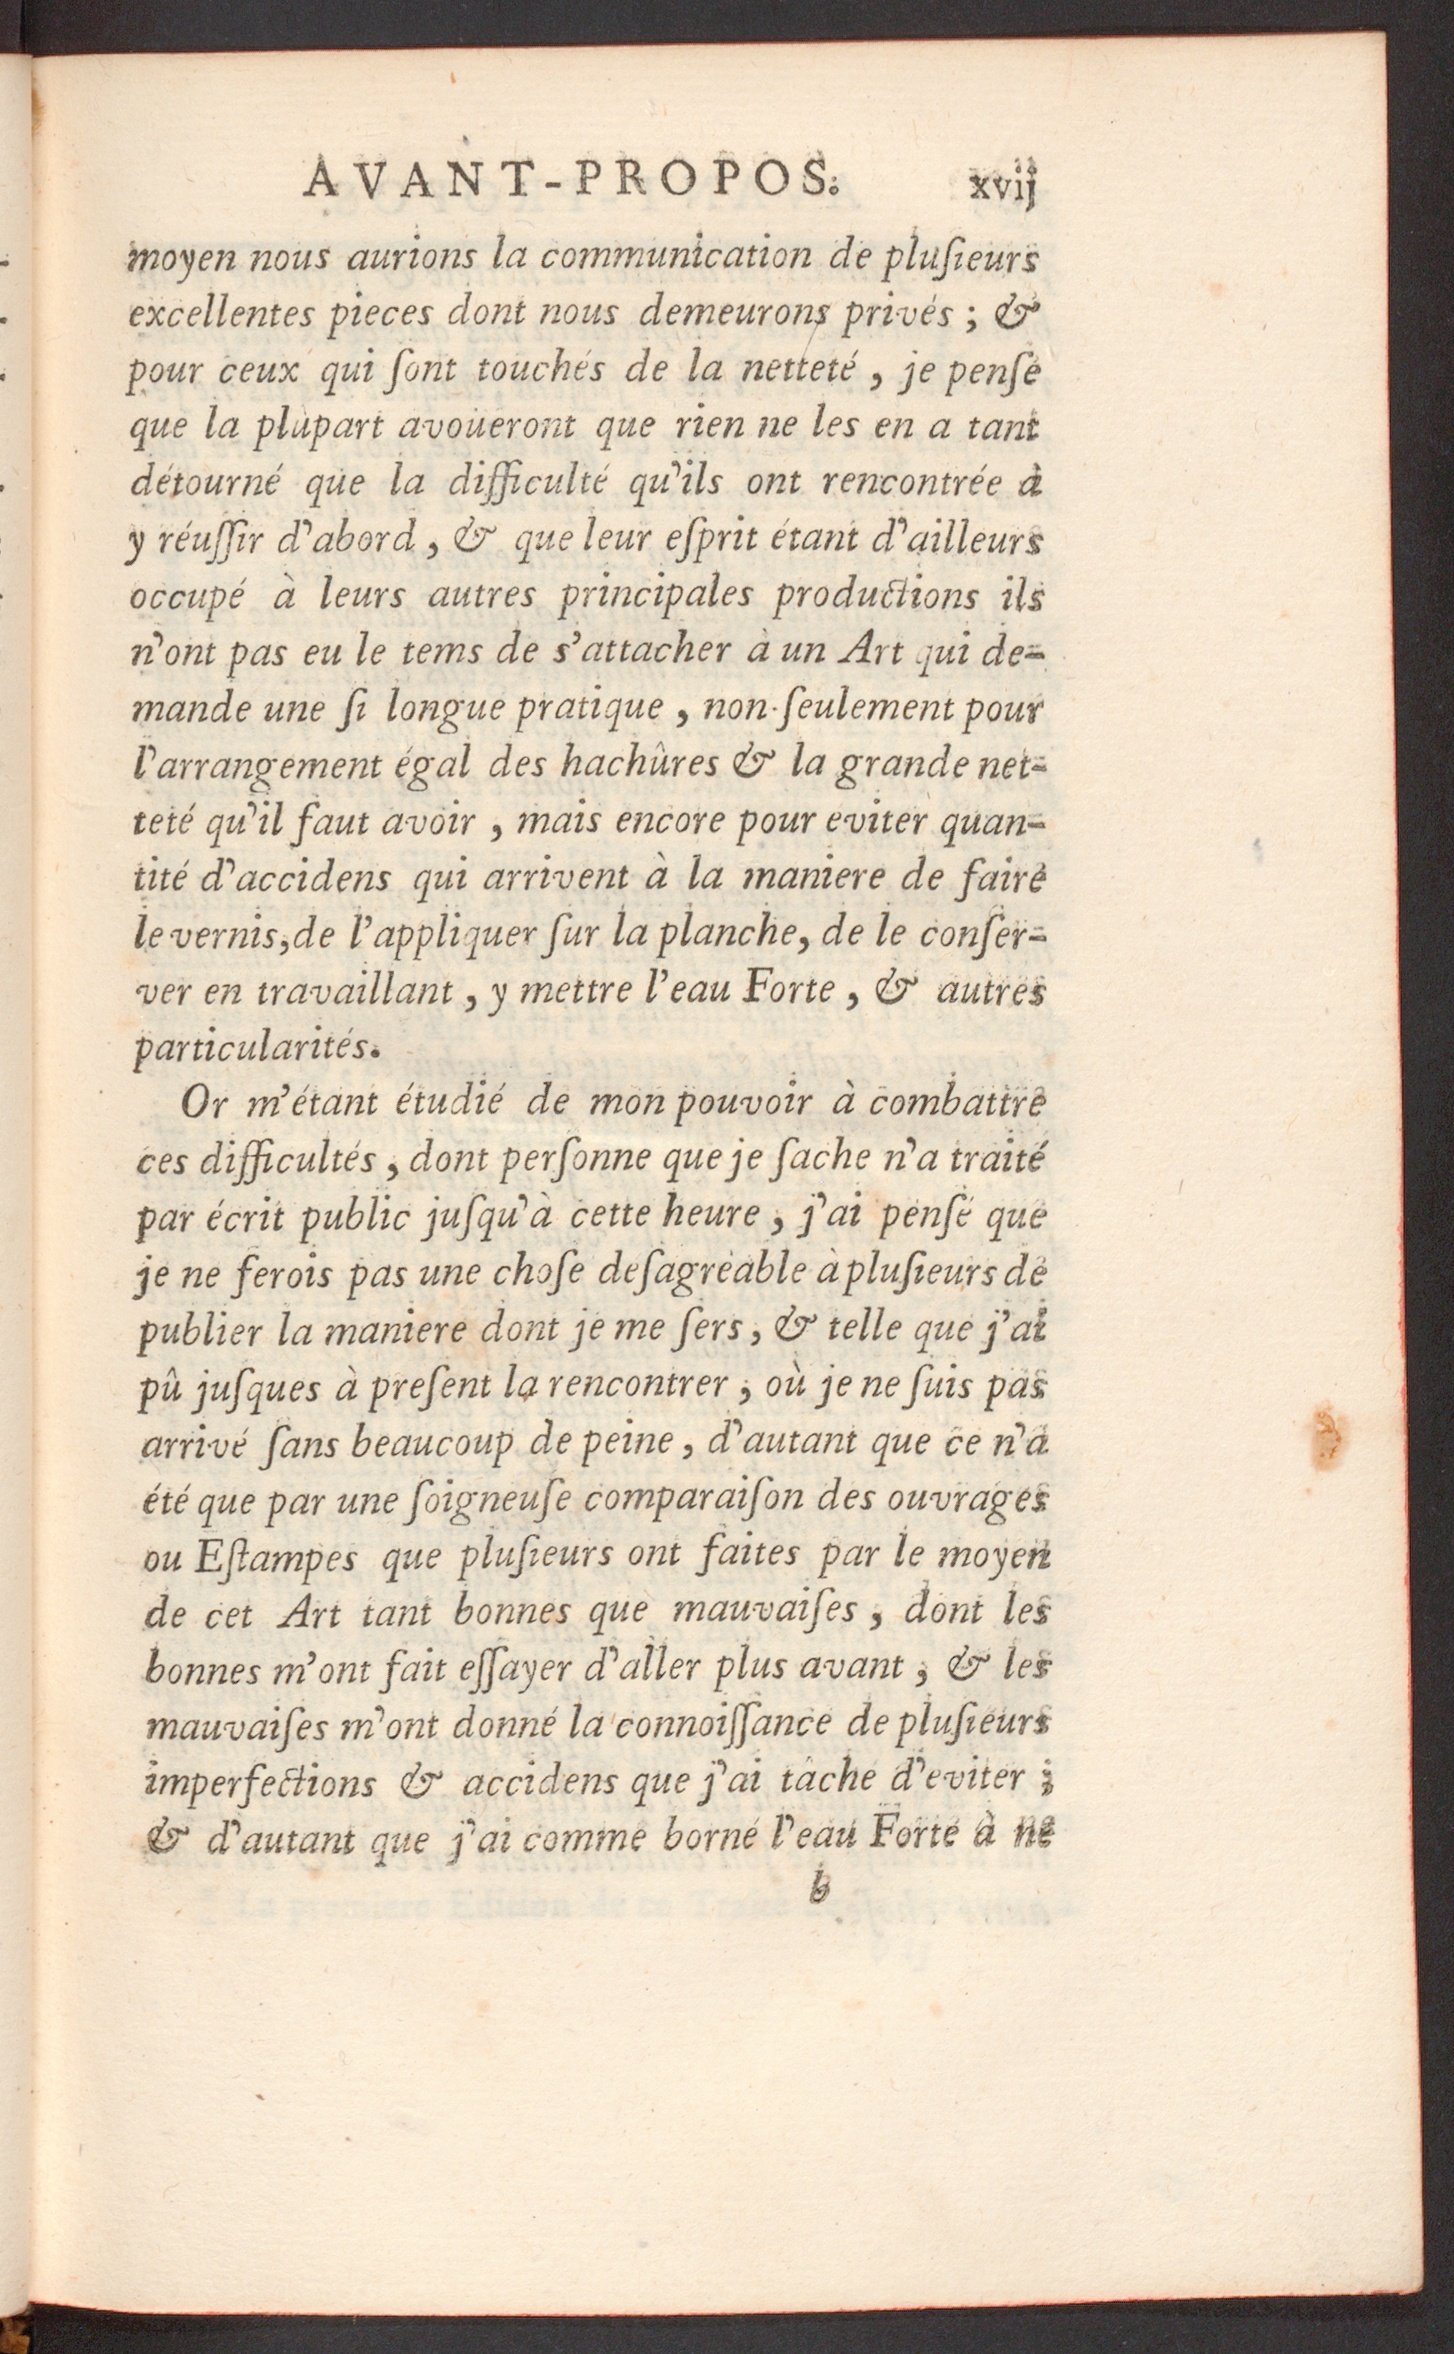 AVANT-PROPOS. xvij
moyen nous aurions la communication de pluſieurs
excellentes pieces dont nous demeurons privés ; &
pour ceux qui ſont touchés de la netteté , je penſe
que la plûpart avoüeront que rien ne les en a tant
détourné que la difficulté qu'ils ont rencontrée à
y réuſſir d'abord , & que leur eſprit étant d'ailleurs
occupé à leurs autres principales productions ils
n'ont pas eu le tems de s'attacher à un Art qui de-
mande une ſi longue pratique , non-ſeulement pour
l'arrangement égal des hachûres & la grande net-
teté qu'il faut avoir , mais encore pour eviter quan-
tité d'accidens qui arrivent à la maniere de faire
le vernis, de l'appliquer ſur la planche, de le conſer-
ver en travaillant , y mettre l'eau Forte , & autres
particularités.
Or m'étant étudié de mon pouvoir à combattre
ces difficultés , dont perſonne que je ſache n'a traité
par écrit public juſqu'à cette heure , j'ai penſé que
je ne ferois pas une choſe deſagréable à pluſieurs de
publier la maniere dont je me ſers , & telle que j'ai
pû juſques à preſent la rencontrer , où je ne ſuis pas
arrivé ſans beaucoup de peine , d'autant que ce n'a
été que par une ſoigneuſe comparaiſon des ouvrages
ou Eſtampes que pluſieurs ont faites par le moyen
de cet Art tant bonnes que mauvaiſes , dont les
bonnes m'ont fait eſſayer d'aller plus avant , & les
mauvaiſes m'ont donné la connoiſſance de pluſieurs
imperfections & accidens que j'ai tâché d'eviter ;
& d'autant que j'ai comme borné l'eau Forte à ne
b